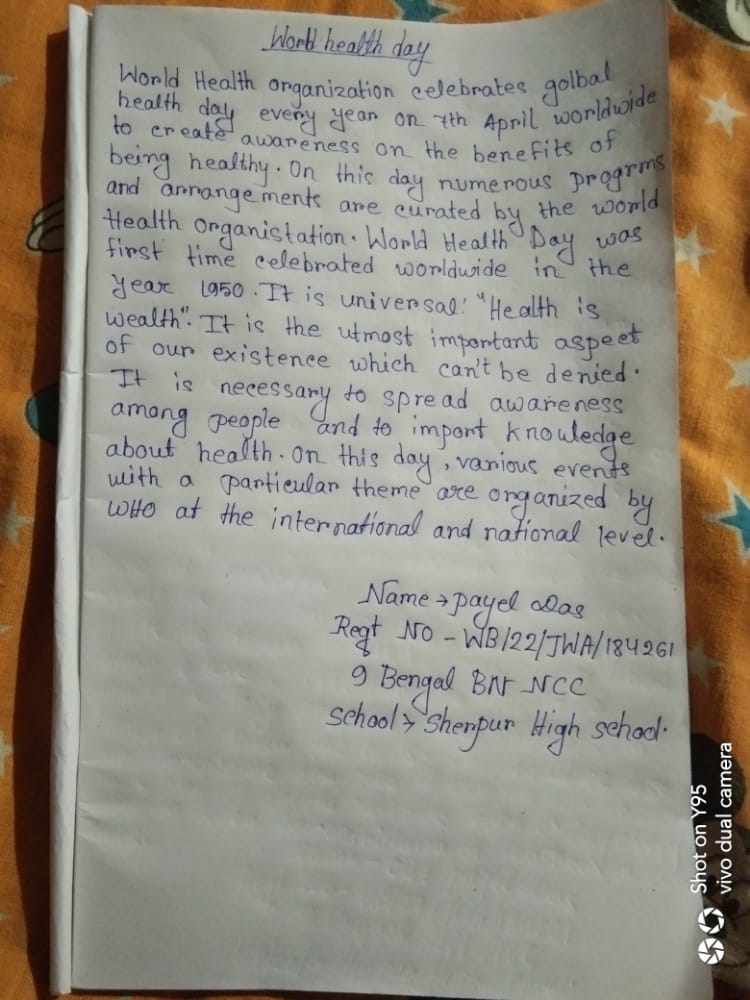 World health day
World Health organization celebrates golbal
health day every year on 7th April worldwide
to create awareness on the benefits of
being healthy. On this day numerous progrms
and arrangements are curated by the world
Health Organistation. World Health Day was
first time celebrated worldwide in the
year 1950. It is universal: "Health is
wealth". It is the utmost important aspect
of our existence which can't be denied.
It is necessary to spread awareness
among people and to import knowledge
about health. On this day, various events
with a particular theme are organized by
WHO at the international and national level.
Name → payel Das
Regt NO - WB/22/JWA/184261
9 Bengal BN NCC
School → Sherpur High school.
Shot on Y95
vivo dual camera